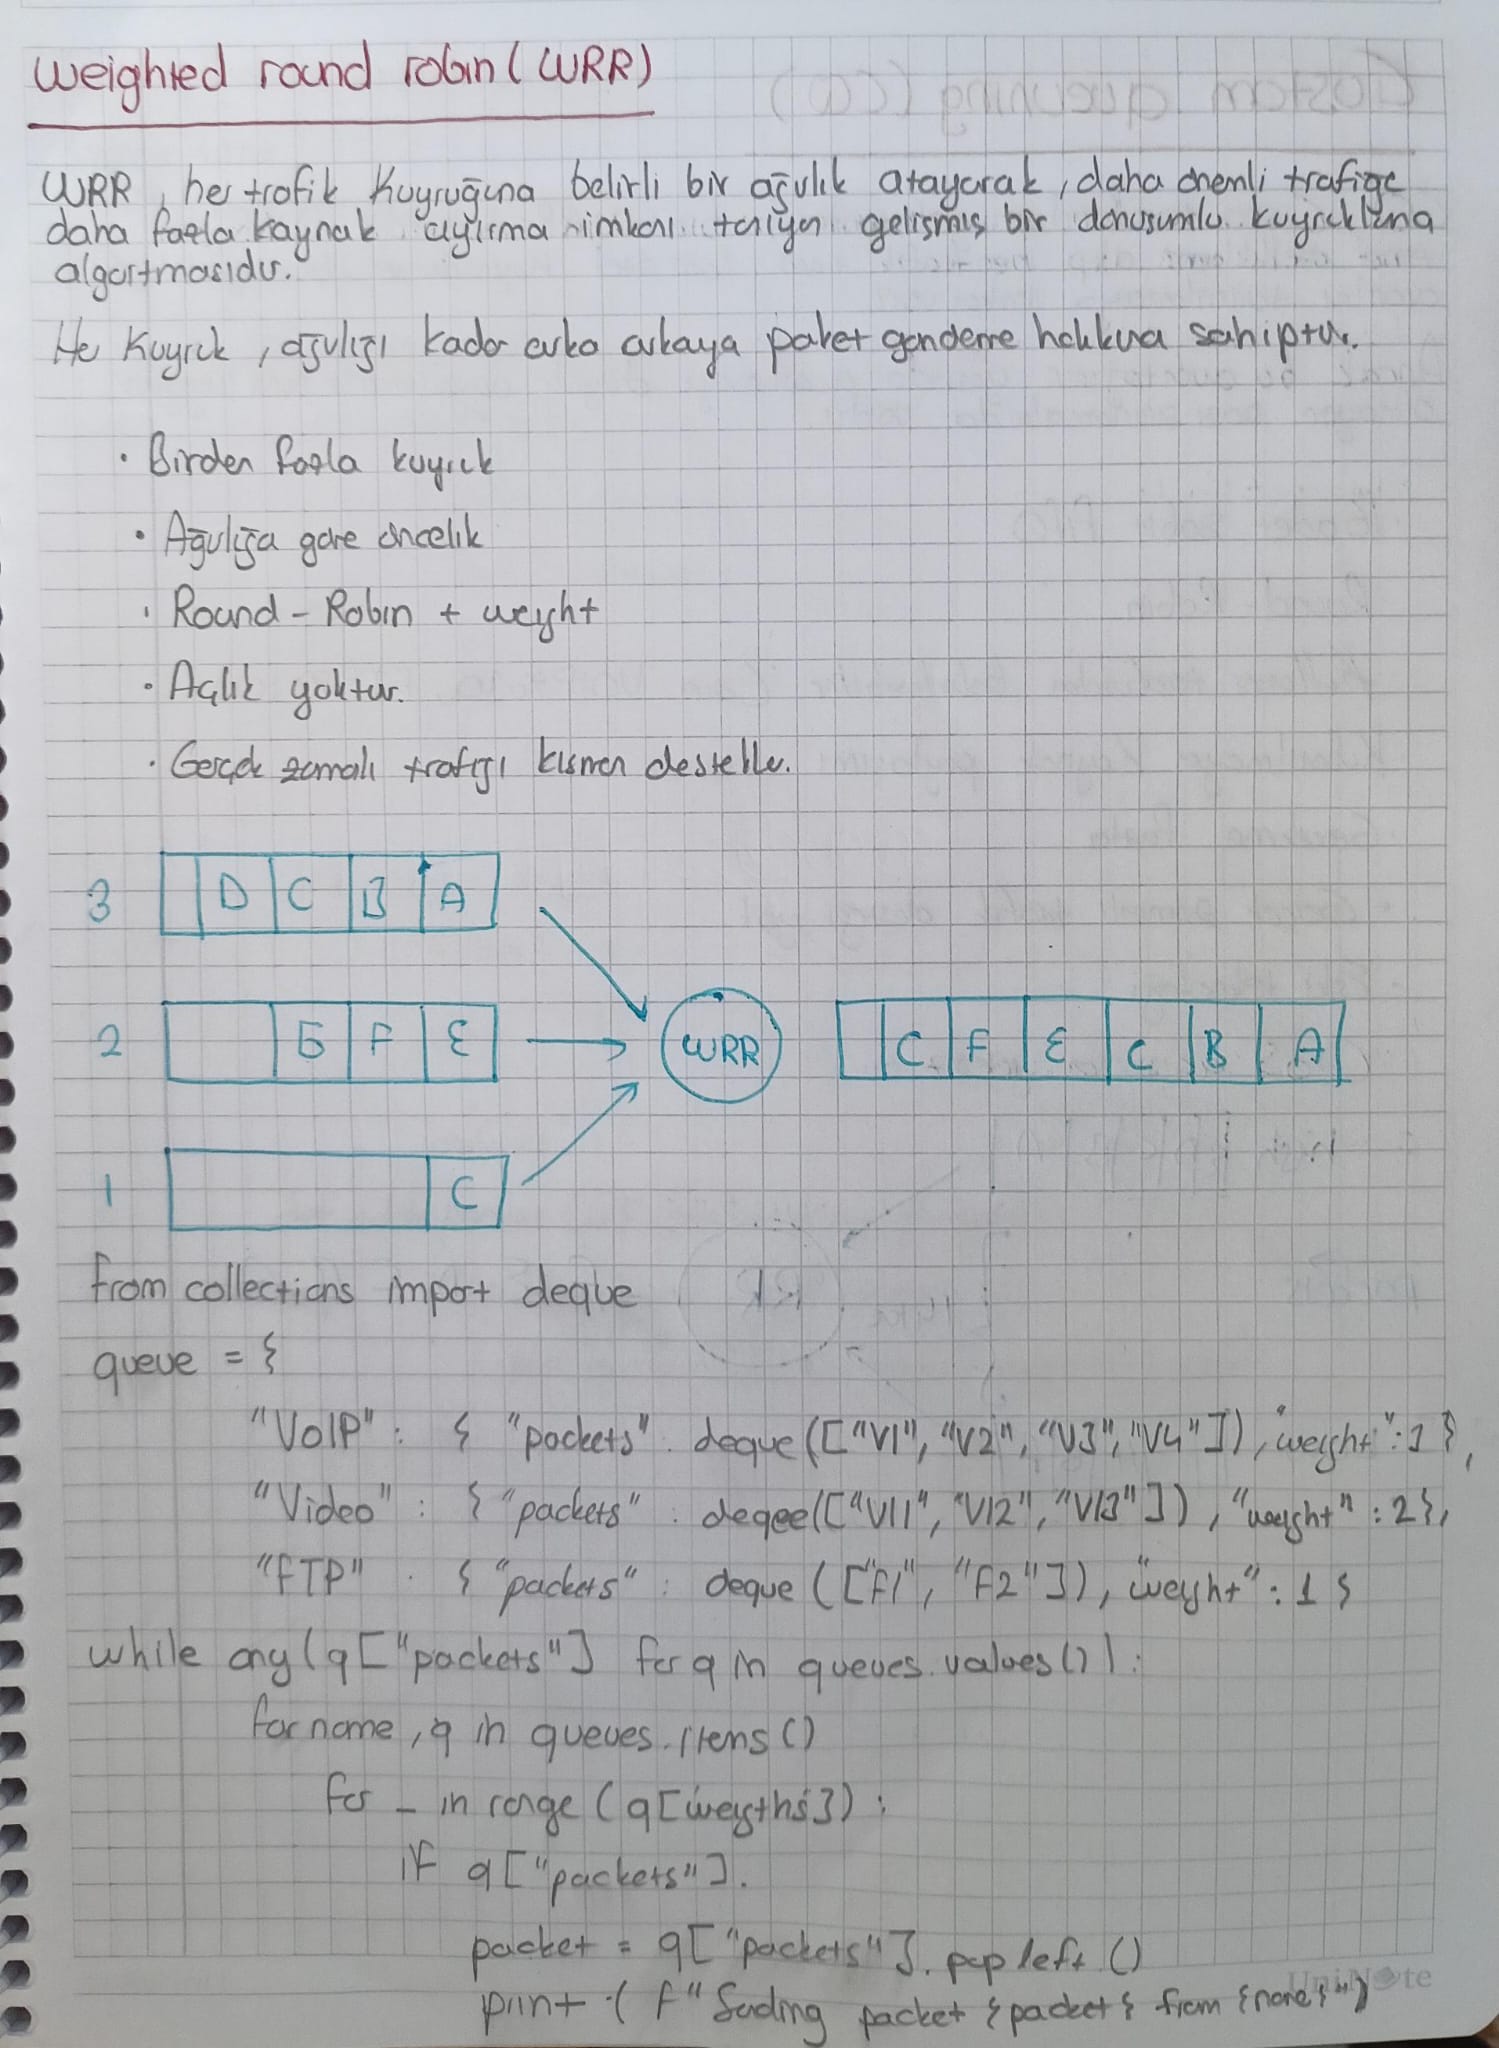 weighted round robin (WRR)
WRR, her trafik kuyruğuna belirli bir ağırlık atayarak, daha önemli trafiğe
daha fazla kaynak ayırma imkanı tanıyan gelişmiş bir dönüşümlü kuyruklama
algoritmasıdır.
He Kuyruk, ağırlığı kadar arka arkaya paket gönderme hakkına sahiptir.
· Birden fazla kuyruk
· Ağırlığa göre öncelik
· Round - Robin + weight
· Açlık yoktur.
· Gerçek zamalı trafiği kısmen destekler.
3 D C B A
2 G F E WRR C F E C B A
1 C
from collections import deque
queue = {
"VoIP" : { "packets" : deque (["V1", "V2", "V3", "V4"]), "weight" : 3 },
"Video" : { "packets" : deqee(["VI1", "VI2", "VI3"]), "weight" : 2},
"FTP" : { "packets" : deque (["F1", "F2"]), "weight" : 1 }
while any (q ["packets"] for q in queues.values()):
for name, q in queues.items ()
for _ in range (q["weigths"]):
if q ["packets"].
packet = q["packets"].popleft ()
print (f" Sending packet {packet} from {name}")
UniNote